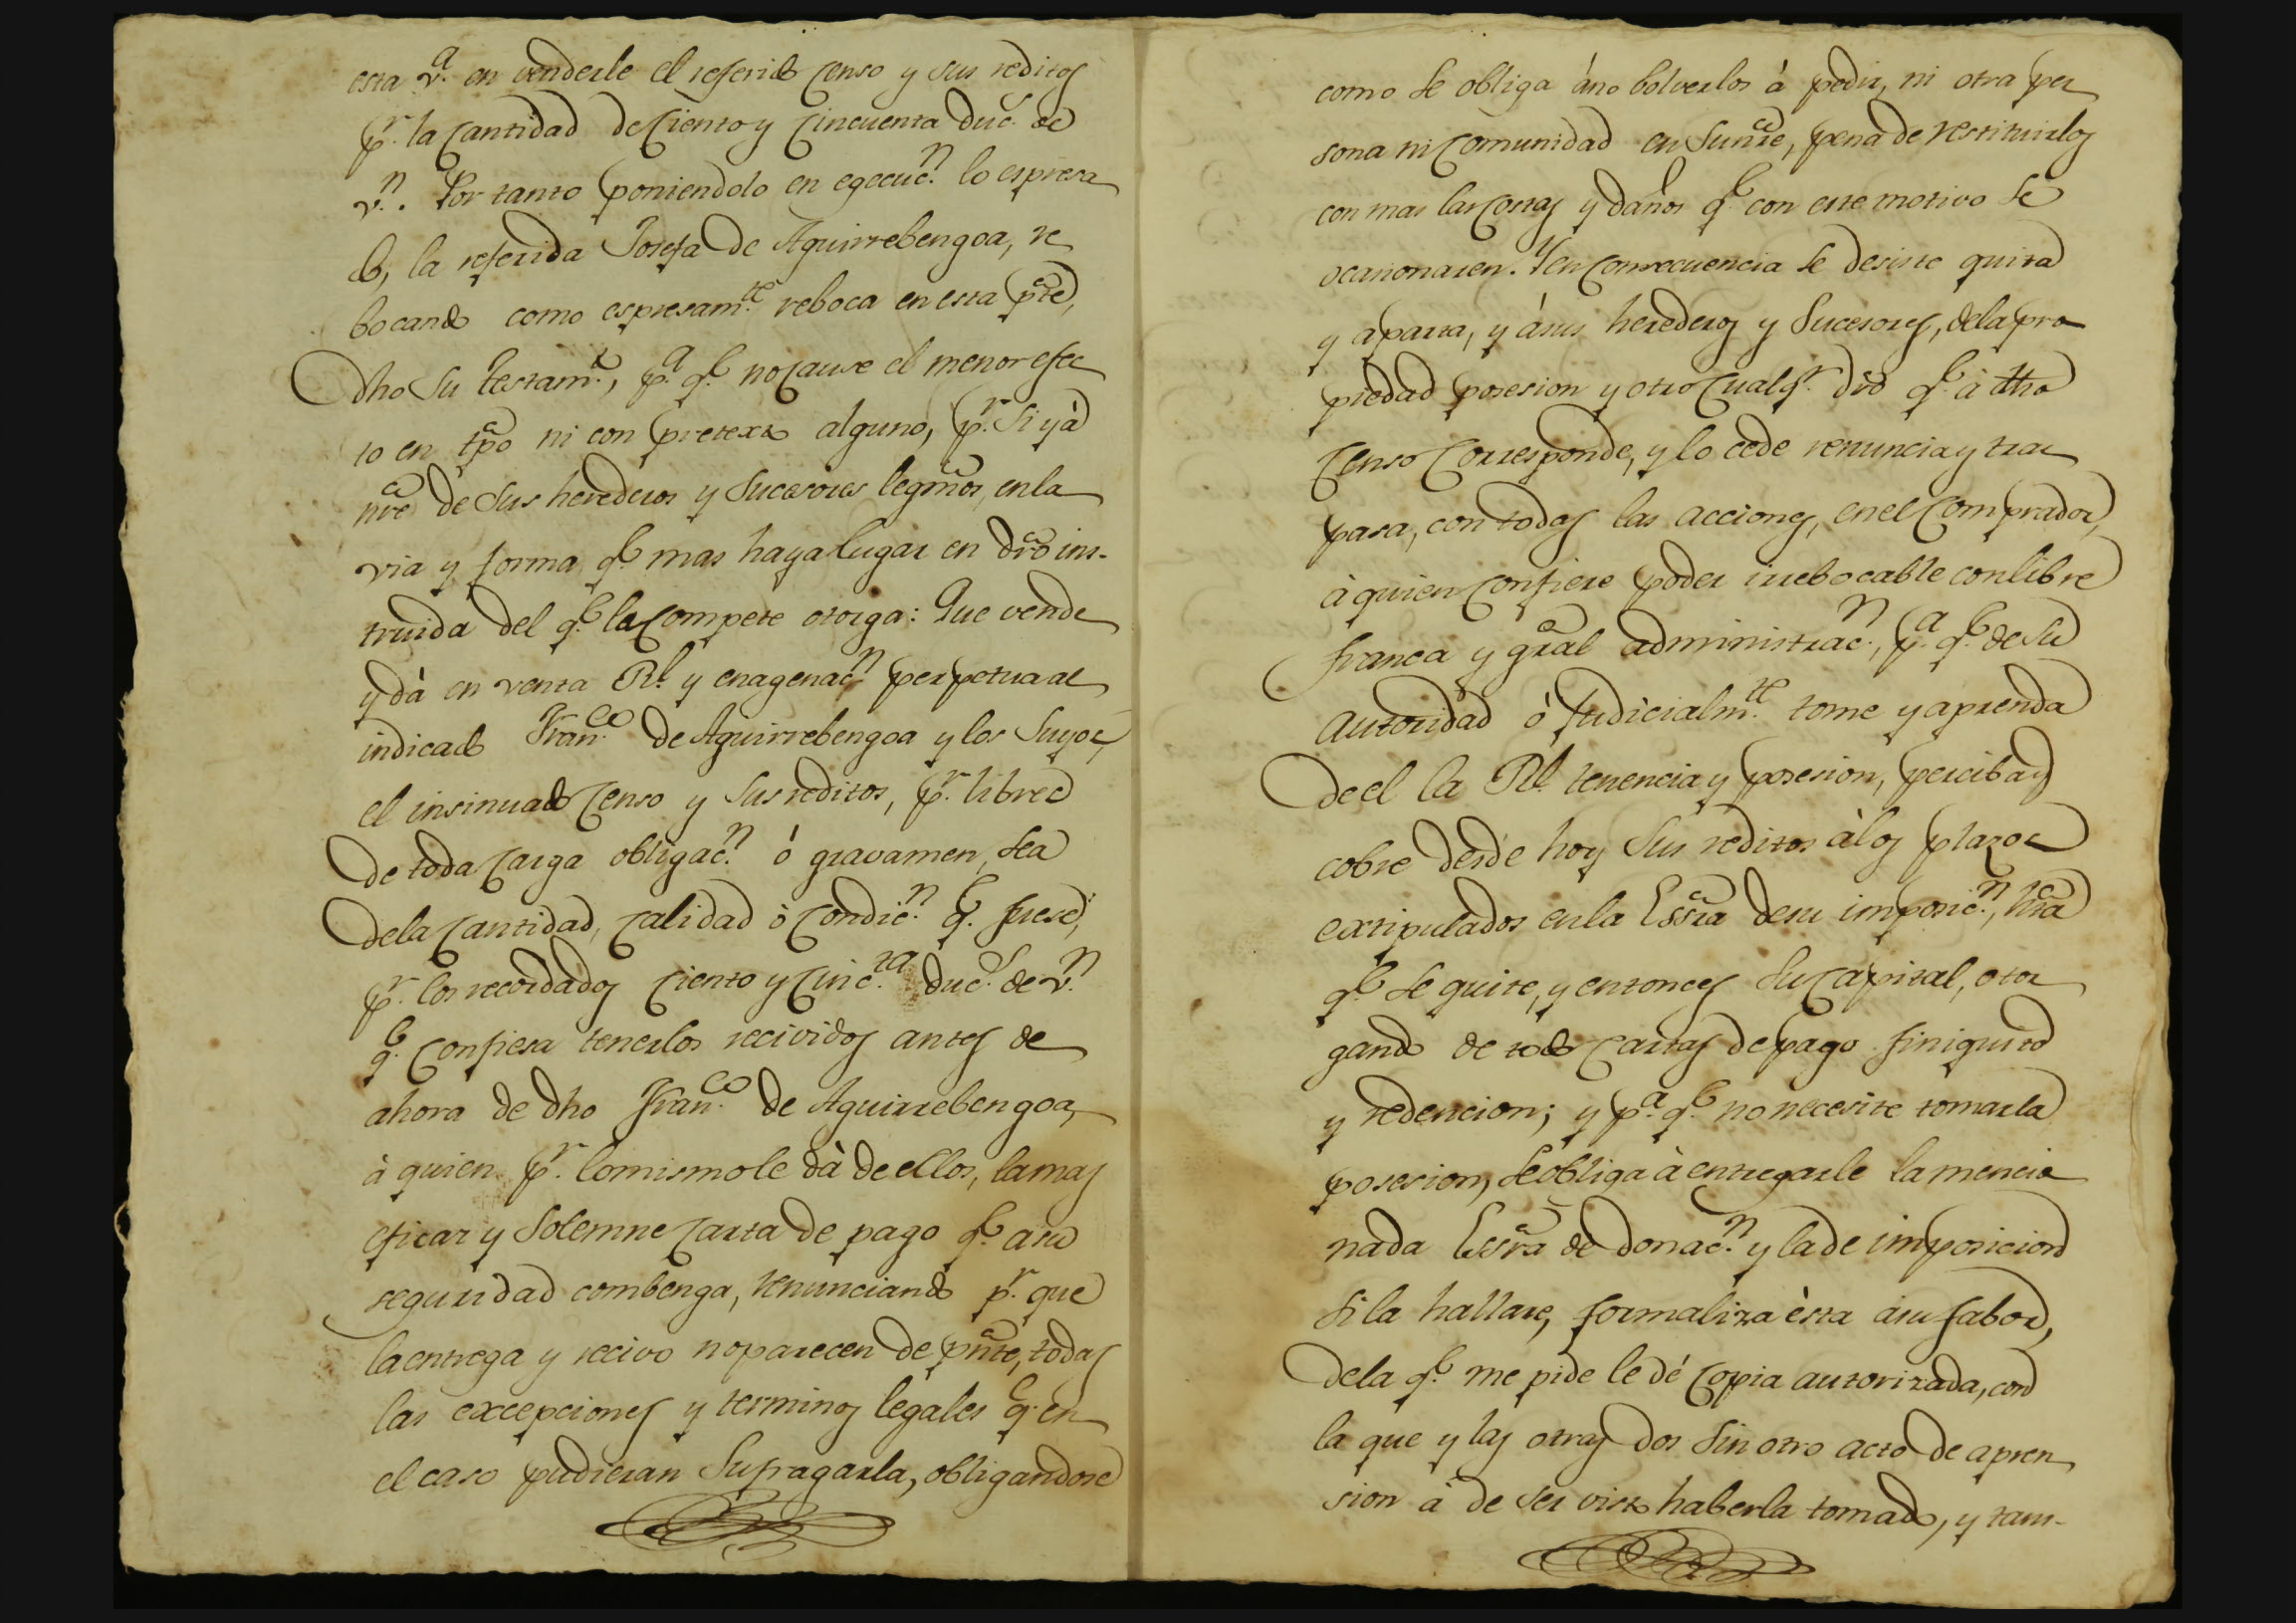 esta v.ª en venderle el referido censo y sus reditos
p.r la cantidad de ciento y cincuenta duc.s de
v.n. Por tanto poniendolo en egecuc.n lo espresa
do, la referida Josefa de Aguirrebengoa, re
bocando como espresam.te reboca en esta p.te,
dho su testam.to, p.ª q.e no cause el menor efec
to en tpo ni con pretexto alguno, p.r si y à
nre de sus herederos y sucesores legmos, en la
via y forma q.e mas haya lugar en dro ins-
truida del q.e la compete otorga: Que vende
y dà en venta Rl. y enagenac.n perpetua al
indicado Fran.co de Aguirrebengoa y los suyos,
el insinuado censo y sus reditos, p.r libre
de toda carga obligac.n ó gravamen, sea
dela cantidad, calidad ò condic.n q.e fuese,
p.r los recordados ciento y cinc.ta duc.s de v.n
q.e confiesa tenerlos recividos antes de
ahora de dho Fran.co de Aguirrebengoa,
à quien p.r lo mismo le dà de ellos, la mas
eficaz y solemne carta de pago q.e a su
seguridad combenga, renunciando p.r que
la entrega y recivo no parecen de pnte, todas
las excepciones y terminos legales q.e en
el caso pudieran sufragarla, obligandose
como se obliga áno bolverlos à pedir, ni otra per
sona ni comunidad en su nre, pena de restituirlos
con mas las costas y daños q.e con este motivo se
ocasionaren. Y en consecuencia se desiste quita
y aparta, y ásus herederos y sucesores, dela pro
piedad posesion y otro cualq.r dro q.e à dho
censo corresponde, y lo cede renuncia y tras
pasa, con todas las acciones, en el comprador,
à quien confiere poder irrebocable con libre
franca y gral administrac.n, p.ª q.e de su
autoridad ó judicialm.te tome y aprenda
de el la Rl. tenencia y posesion, perciba y
cobre desde hoy sus reditos à los plazos
extipulados en la Essra de su imposic.n, hta
q.e se quite, y entonces su capital, otor
gando de todo cartas de pago finiquito
y redencion; y p.ª q.e no necesite tomar la
posesion, se obliga à entregarle la mencio
nada Essra de donac.n y la de imposicion
si la hallare, formaliza èsta à su fabor,
dela q.e me pide le dé copia autorizada, con
la que y las otras dos sin otro acto de apren
sion à de ser visto haberla tomado, y tam-